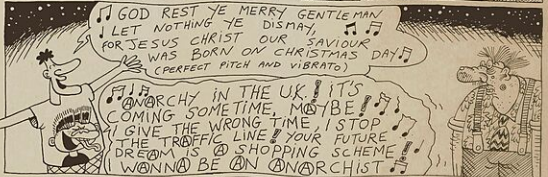 GOD REST YE MERRY GENTLEMAN
LET NOTHING YE DISMAY,
FOR JESUS CHRIST OUR SAVIOUR
WAS BORN ON CHRISTMAS DAY
(PERFECT PITCH AND VIBRATO)
ANARCHY IN THE U.K.! IT'S
COMING SOMETIME, MAYBE!
I GIVE THE WRONG TIME, I STOP
THE TRAFFIC LINE! YOUR FUTURE
DREAM IS A SHOPPING SCHEME!
I WANNA BE AN ANARCHIST